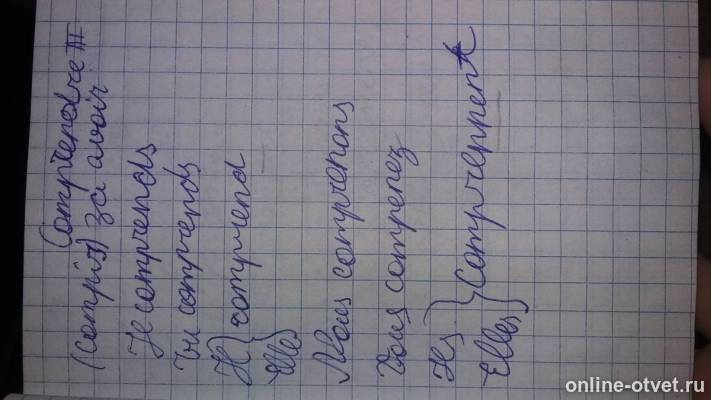 Comprendre III
(compris) за avoir
Je comprends
Tu comprends
Il } comprend
Elle
Nous comprenons
Vous compenez
Ils } Comprennent
Elles
online-otvet.ru